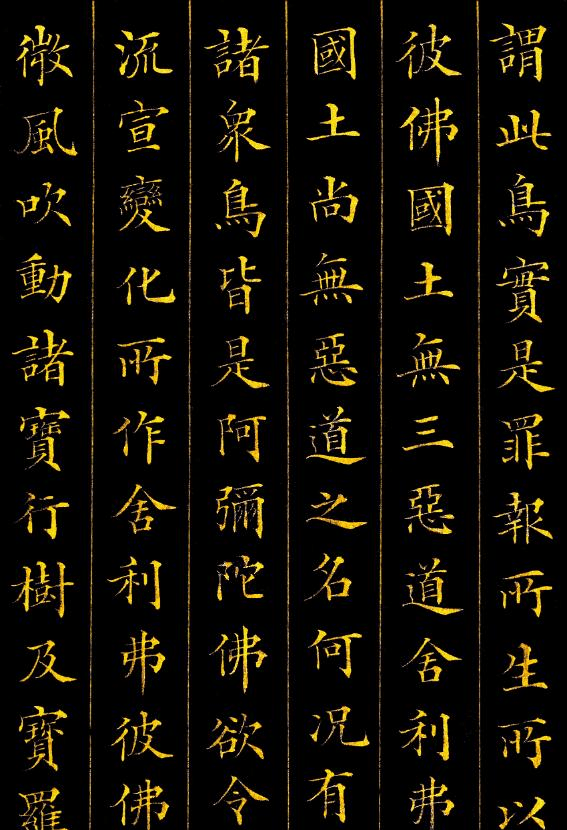 謂此鳥實是罪報所生所以
彼佛國土無三惡道舍利弗
國土尚無惡道之名何況有
諸衆鳥皆是阿彌陀佛欲令
流宣變化所作舍利弗彼佛
微風吹動諸寶行樹及寶羅